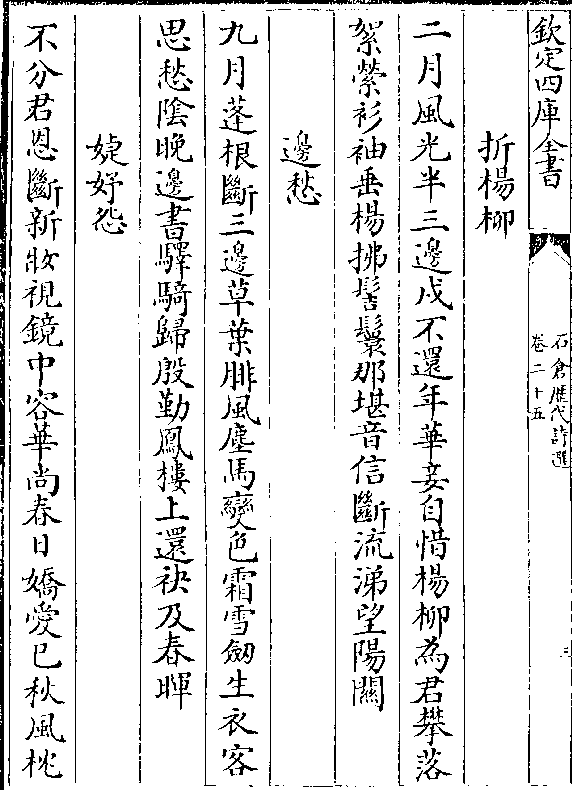 欽定四庫全書
石倉歴代詩選
卷二十五
三
折楊柳
二月風光半三邊戍不還年華妾自惜楊柳為君攀落
絮縈衫袖垂楊拂髻鬟那堪音信斷流涕望陽關
邊愁
九月蓬根斷三邊草葉腓風塵馬變色霜雪劒生衣客
思愁隂晚邊書驛騎歸殷勤鳳樓上還袂及春暉
婕妤怨
不分君恩斷新妝視鏡中容華尚春日嬌愛已秋風枕